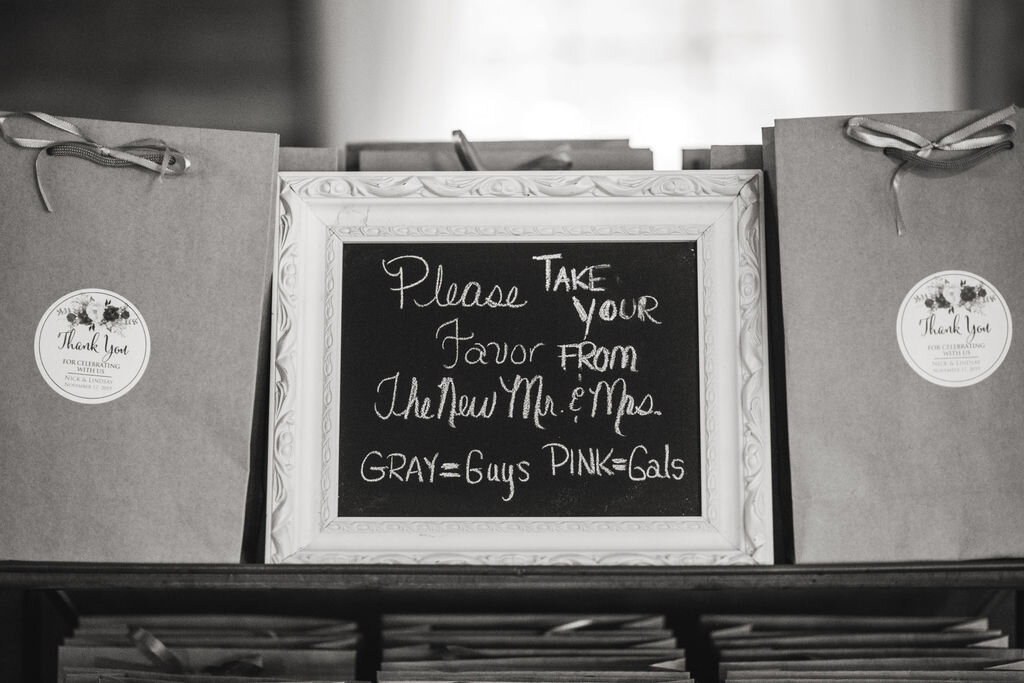 Please TAKE
YOUR
Favor FROM
The New Mr. & Mrs.
GRAY=Guys PINK=Gals
Thank You
FOR CELEBRATING
WITH US
NICK & LINDSAY
NOVEMBER 17, 2019
Thank You
FOR CELEBRATING
WITH US
NICK & LINDSAY
NOVEMBER 17, 2019